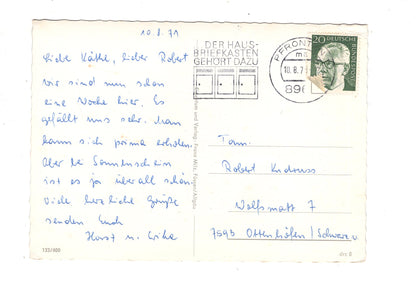 10.8.71
Liebe Käthe, lieber Robert
wir sind nun schon
eine Woche hier. Es
gefällt uns sehr. Man
kann sich prima erholen.
Bei Sonnenschein
ist es ja überall schön.
Viele herzliche Grüße
senden Euch
Horst u. Erika
133/869
DER HAUS-
BRIEFKASTEN
GEHÖRT DAZU
PFRONT
10.8.7
896
20 DEUTSCHE
BUNDESPOST
Fam.
Robert
Wolfsmatt 7
7593 Ottenhöfen/Schwarzw